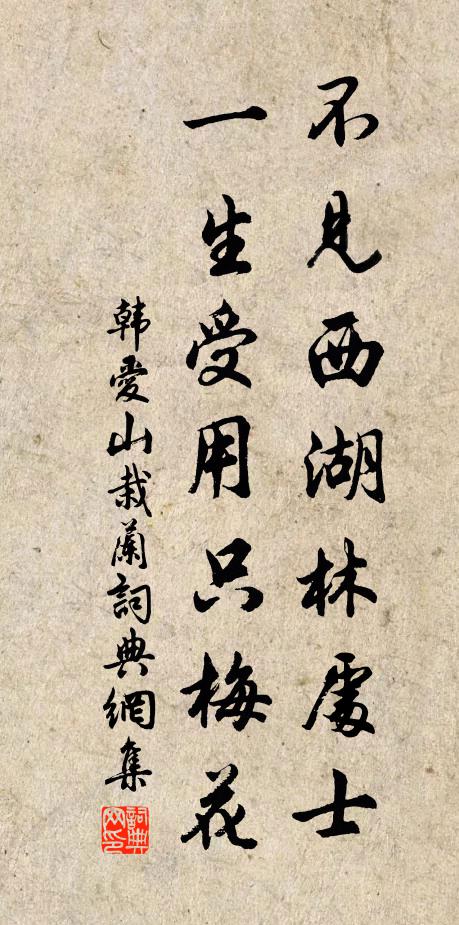 不見西湖林處士
一生受用只梅花
韓愛山栽蘭詞典網集
詞典网印